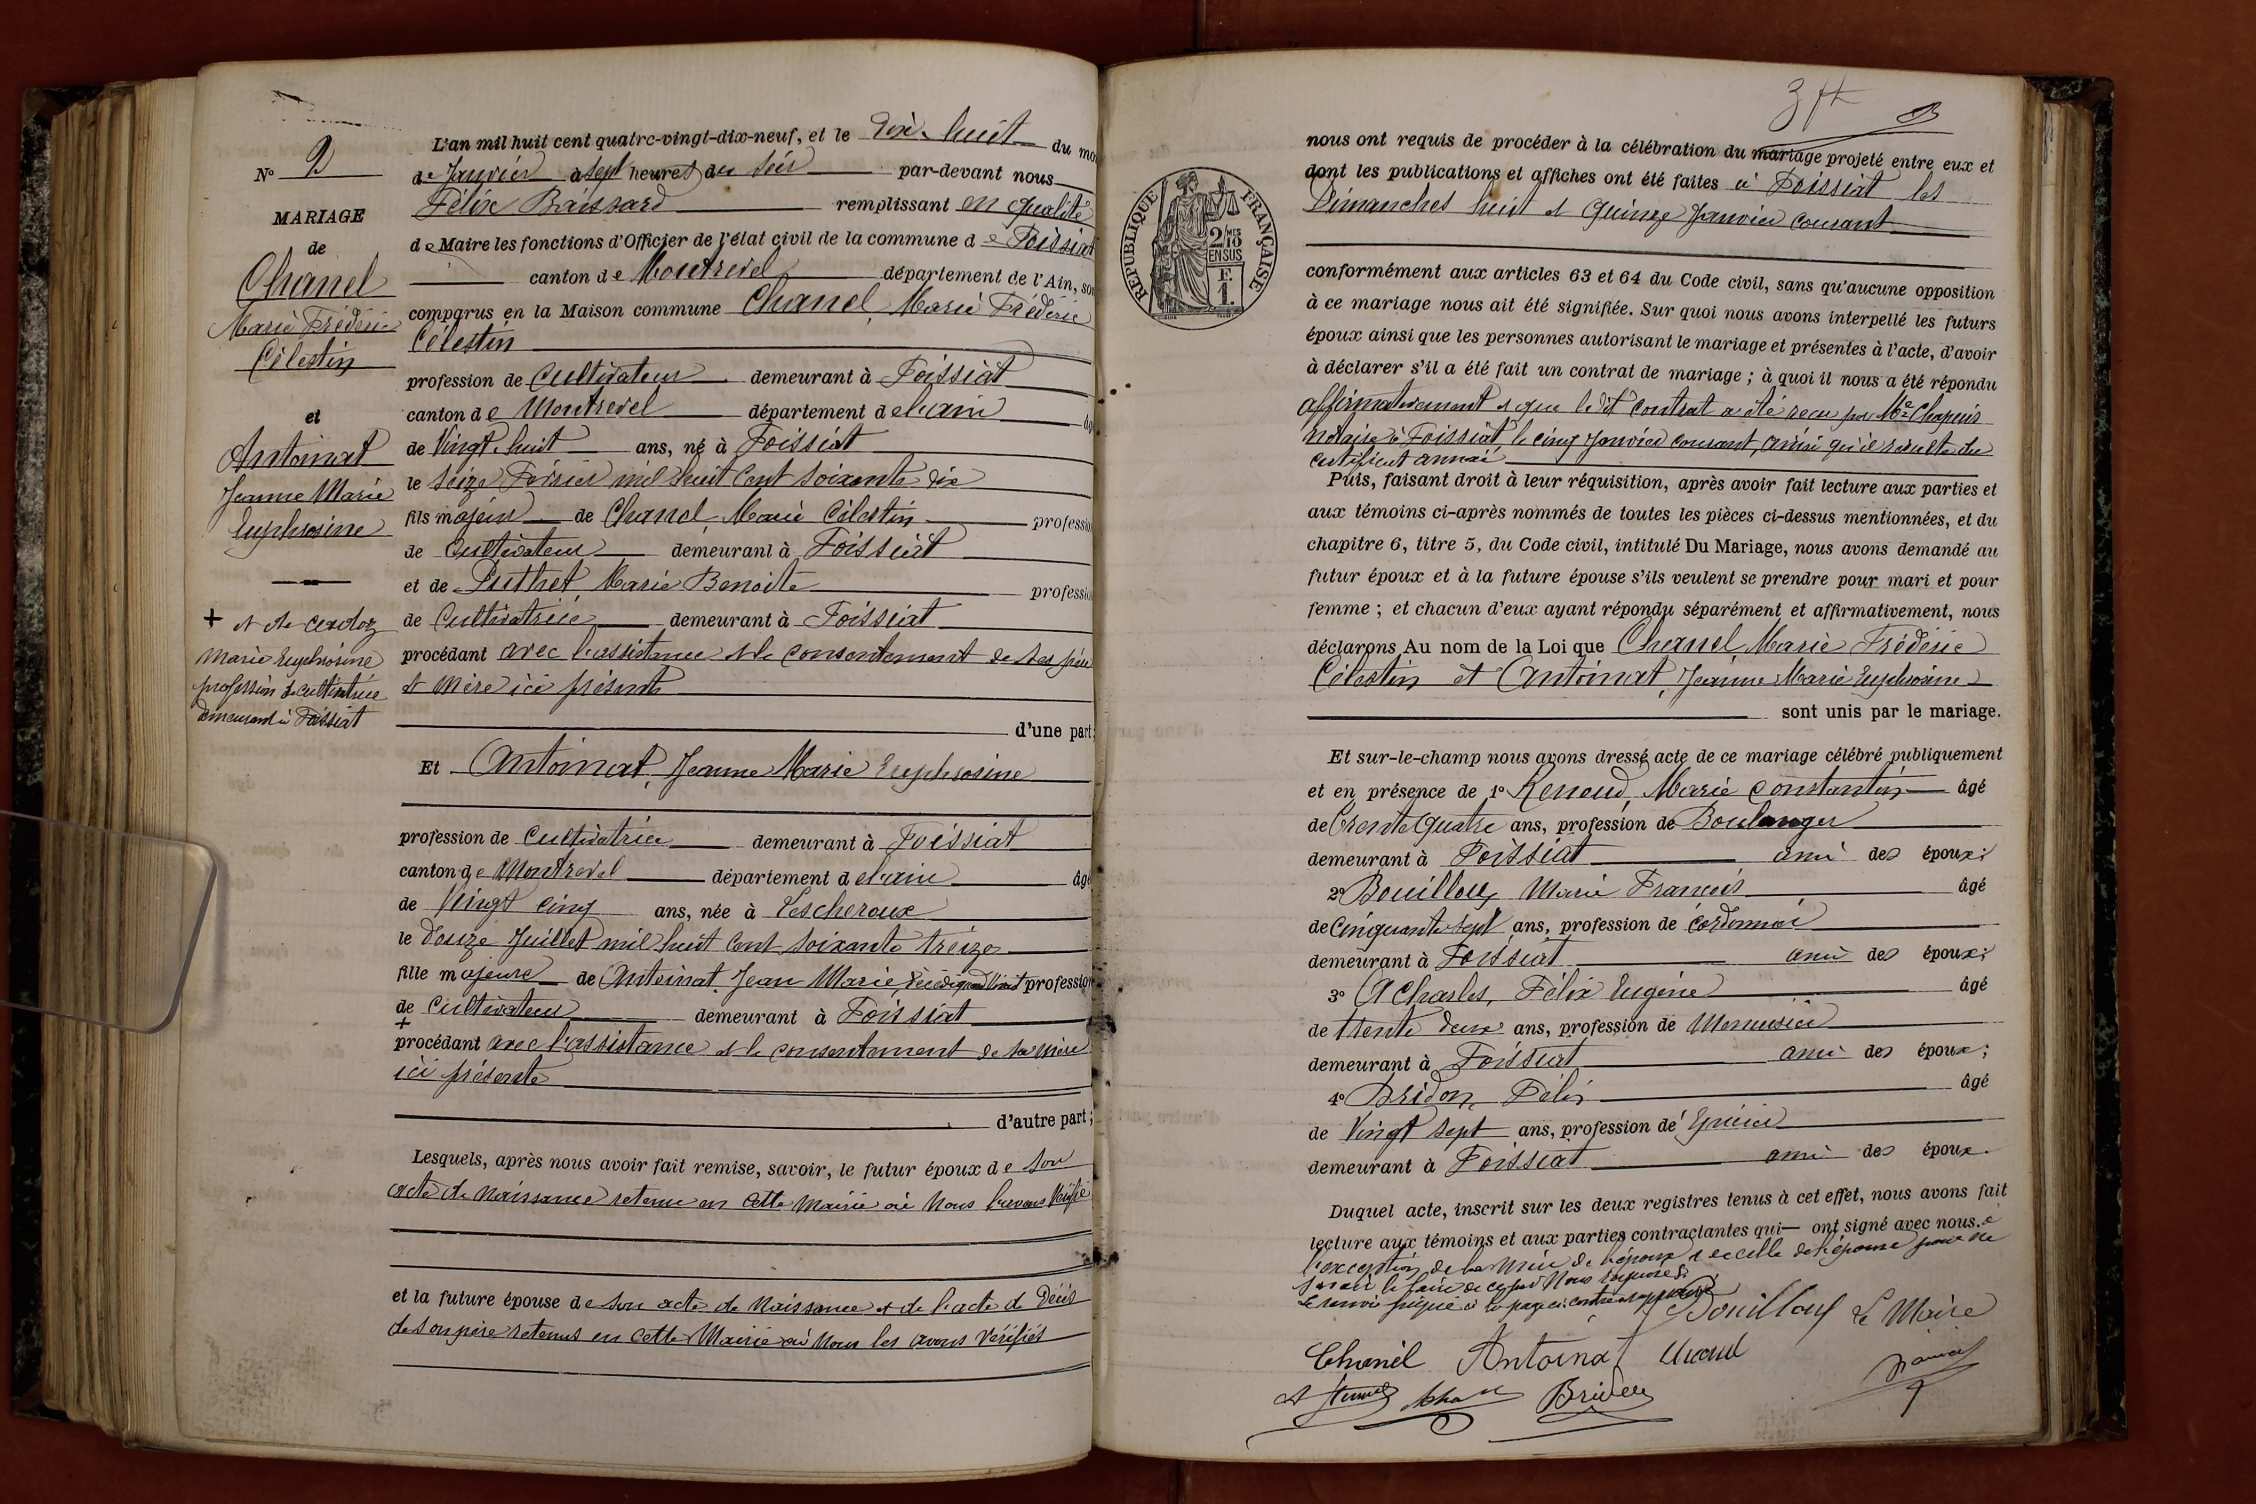 N° 2
MARIAGE
de
Chanel
Marie Frédéric
Célestin
et
Antoinat
Jeanne Marie
Euphrosine
+ et de Cardoz
Marie Euphrosine
profession de cultivatrice
demeurant à Foissiat
L'an mil huit cent quatre-vingt-dix-neuf, et le Dix-huit du mo
de Janvier à sept heures du soir par-devant nous
Félix remplissant en qualité
de Maire les fonctions d'Officier de l'état civil de la commune de Foissiat
canton de Montrevel département de l'Ain, so
comparus en la Maison commune Chanel, Marie Frédéric
Célestin
profession de Cultivateur demeurant à Foissiat
canton de Montrevel département de l'ain âg
de Vingt-huit ans, né à Foissiat
le Seize Février mil huit Cent Soixante dix
fils majeur de Chanel Marie Célestin professio
de Cultivateur demeurant à Foissiat
et de Puthet Marie Benoite professio
de Cultivatrice demeurant à Foissiat
procédant avec l'assistance et le consentement de ses père
et mère ici présents
d'une part;
Et Antoinat, Jeanne Marie Euphrosine
profession de Cultivatrice demeurant à Foissiat
canton de Montrevel département de l'ain âgé
de Vingt cinq ans, née à Lescheroux
le Douze Juillet mil huit Cent Soixante treize
fille majeure de Antoinat Jean Marie, décédé quand vivait profession
de Cultivateur demeurant à Foissiat
+
procédant avec l'assistance et le consentement de sa mère
ici présente
d'autre part;
Lesquels, après nous avoir fait remise, savoir, le futur époux de son
acte de Naissance retenu en cette Mairie où Nous l'avons Vérifié
et la future épouse de son acte de Naissance et de l'acte de Décès
de son père retenus en cette Mairie où Nous les avons Vérifiés
3
RÉPUBLIQUE FRANÇAISE
2/10 EN SUS
nous ont requis de procéder à la célébration du mariage projeté entre eux et
dont les publications et affiches ont été faites à Foissiat les
Dimanches huit et Quinze Janvier courant
conformément aux articles 63 et 64 du Code civil, sans qu'aucune opposition
à ce mariage nous ait été signifiée. Sur quoi nous avons interpellé les futurs
époux ainsi que les personnes autorisant le mariage et présentes à l'acte, d'avoir
à déclarer s'il a été fait un contrat de mariage; à quoi il nous a été répondu
affirmativement et que ledit contrat a été reçu par Me Chapuis
notaire à Foissiat, le cinq Janvier courant, ainsi qu'il résulte du
certificat annexé
Puis, faisant droit à leur réquisition, après avoir fait lecture aux parties et
aux témoins ci-après nommés de toutes les pièces ci-dessus mentionnées, et du
chapitre 6, titre 5, du Code civil, intitulé Du Mariage, nous avons demandé au
futur époux et à la future épouse s'ils veulent se prendre pour mari et pour
femme; et chacun d'eux ayant répondu séparément et affirmativement, nous
déclarons Au nom de la Loi que Chanel Marie Frédéric
Célestin et Antoinat, Jeanne Marie Euphrosine
sont unis par le mariage.
Et sur-le-champ nous avons dressé acte de ce mariage célébré publiquement
et en présence de 1° Renoud, Marie Constantin âgé
de Trente Quatre ans, profession de Boulanger
demeurant à Foissiat ami des époux;
2° Bouilloux Marie François âgé
de Cinquante sept ans, profession de cordonnier
demeurant à Foissiat ami des époux;
3° Acharles, Félix Eugène âgé
de trente deux ans, profession de Menuisier
demeurant à Foissiat ami des époux;
4° Bridon, Félix âgé
de Vingt sept ans, profession de Epicier
demeurant à Foissiat ami des époux.
Duquel acte, inscrit sur les deux registres tenus à cet effet, nous avons fait
lecture aux témoins et aux parties contractantes qui ont signé avec nous. à
l'exception de la Mère de l'époux et de celle de l'épouse pour ne
savoir le faire de ce par Nous requises.
Le renvoi figuré à la page ci-contre est approuvé
Bouilloux Le Maire
Chanel Antoinat Renoud
Bridon